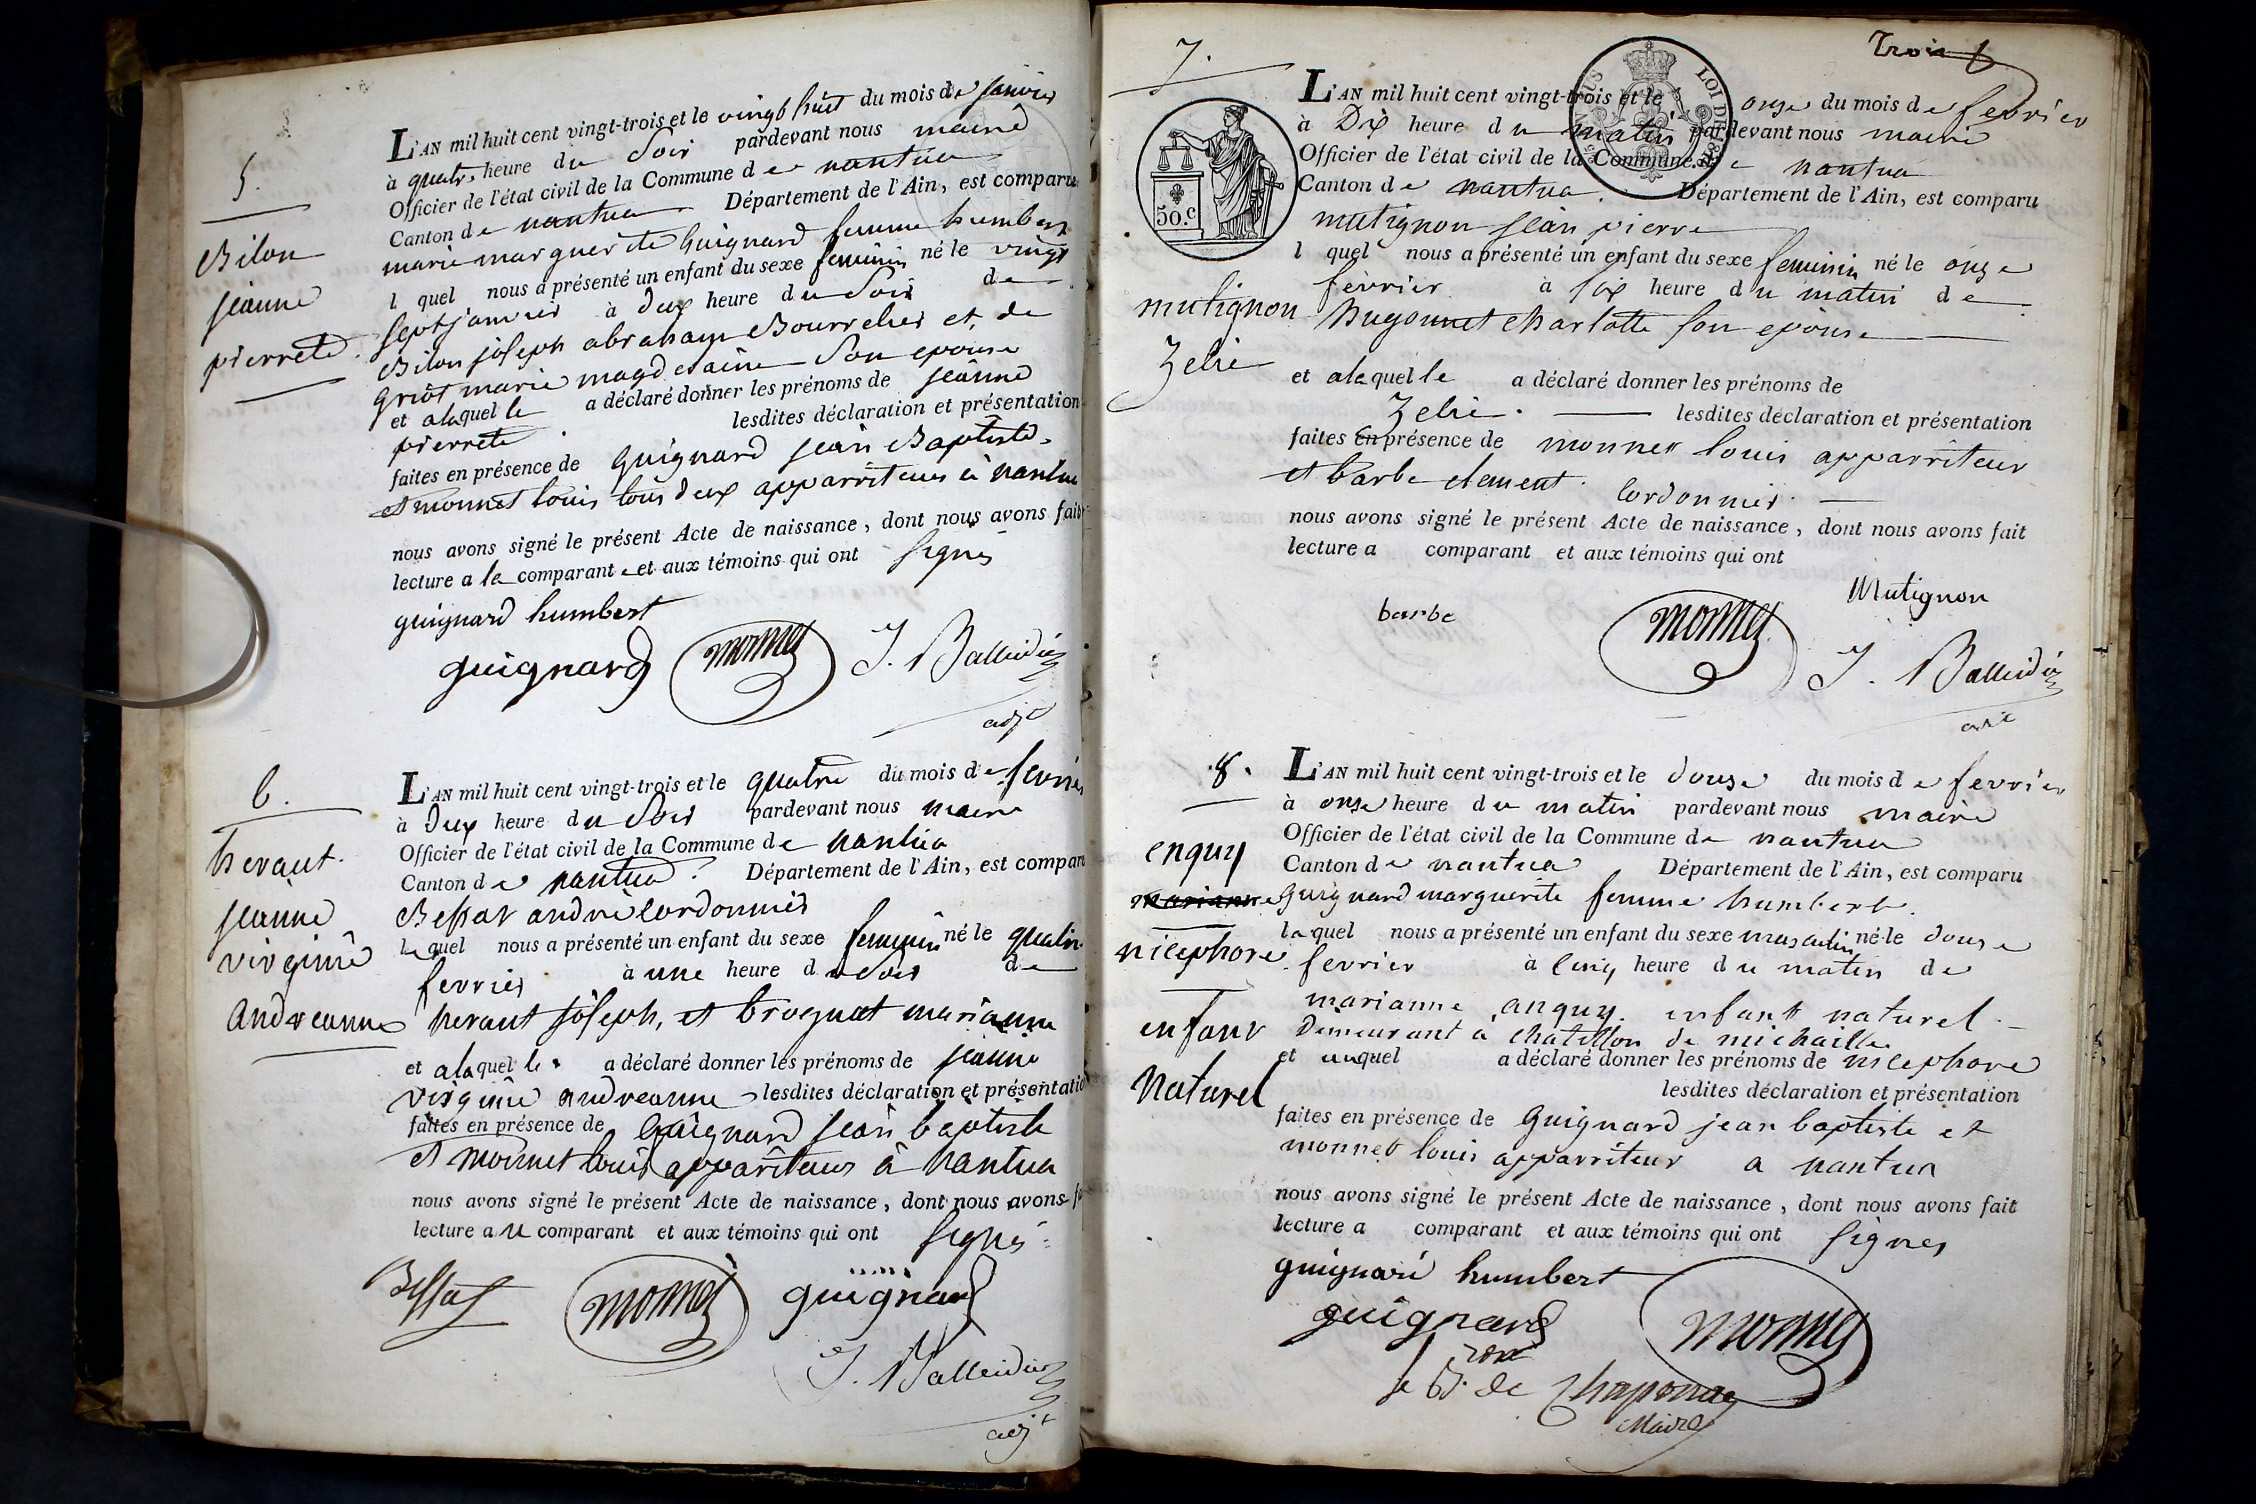 5.
Bilon
jeanne
pierrete.
L'AN mil huit cent vingt-trois et le vingt huit du mois de janvier
à quatre heure du Soir pardevant nous maire
Officier de l'état civil de la Commune de nantua
Canton de nantua Département de l'Ain, est comparu
marie marguerite Guignard femme humbert
l quel nous a présenté un enfant du sexe feminin né le vingt
Sept janvier à deux heure du Soir de
Bilon joseph abraham Bourrelier et de
Griot marie magdelaine Son epouse
et alaquelle a déclaré donner les prénoms de jeanne
pierrete lesdites déclaration et présentation
faites en présence de Guignard jean Baptiste
et monnet louis tous deux apparriteurs à nantua
nous avons signé le présent Acte de naissance, dont nous avons fait
lecture a la comparante et aux témoins qui ont signés
guignard humbert
guignard monnet J. Balleidier
adjt
6.
heraut.
jeanne
virginie
andreanne
L'AN mil huit cent vingt-trois et le quatre du mois de fevrier
à deux heure du Soir pardevant nous maire
Officier de l'état civil de la Commune de nantua
Canton de nantua. Département de l'Ain, est comparu
Bessat andré cordonnier
lequel nous a présenté un enfant du sexe feminin né le quatre
fevrier à une heure du Soir de
heraut joseph, et brognat marianne
et alaquelle a déclaré donner les prénoms de jeanne
virginie andreanne lesdites déclaration et présentation
faites en présence de Guignard jean baptiste
et monnet louis apparîteurs à nantua
nous avons signé le présent Acte de naissance, dont nous avons
lecture au comparant et aux témoins qui ont signés
Bessat monnet guignard
J. Balleidier
adjt
Trois
7.
50.c
LOI DE
mutignon
Zelie
L'AN mil huit cent vingt-trois et le onze du mois de fevrier
à Dix heure du matin pardevant nous maire
Officier de l'état civil de la Commune de nantua
Canton de nantua. Département de l'Ain, est comparu
mutignon jean pierre
l quel nous a présenté un enfant du sexe feminin né le onze
fevrier à six heure du matin de
hugonnet charlotte son epouse
et alaquelle a déclaré donner les prénoms de
Zelie. lesdites déclaration et présentation
faites en présence de monnet louis apparriteur
et barbe clement. cordonnier.
nous avons signé le présent Acte de naissance, dont nous avons fait
lecture a comparant et aux témoins qui ont
Mutignon
barbe monnet
J. Balleidier
adjt
8.
enguy
marianne
nicephore
enfant
naturel
L'AN mil huit cent vingt-trois et le douse du mois de fevrier
à onse heure du matin pardevant nous maire
Officier de l'état civil de la Commune de nantua
Canton de nantua Département de l'Ain, est comparu
Guignard marguerite femme humbert.
laquel nous a présenté un enfant du sexe masculin né le douse
fevrier à cinq heure du matin de
marianne anguy. enfant naturel.
demeurant a chatillon de michaille
et auquel a déclaré donner les prénoms de nicephore
lesdites déclaration et présentation
faites en présence de Guignard jean baptiste et
monnet louis apparriteur a nantua
nous avons signé le présent Acte de naissance, dont nous avons fait
lecture a comparant et aux témoins qui ont signes
guignard humbert
guignard monnet
le de Chaponay
Maire